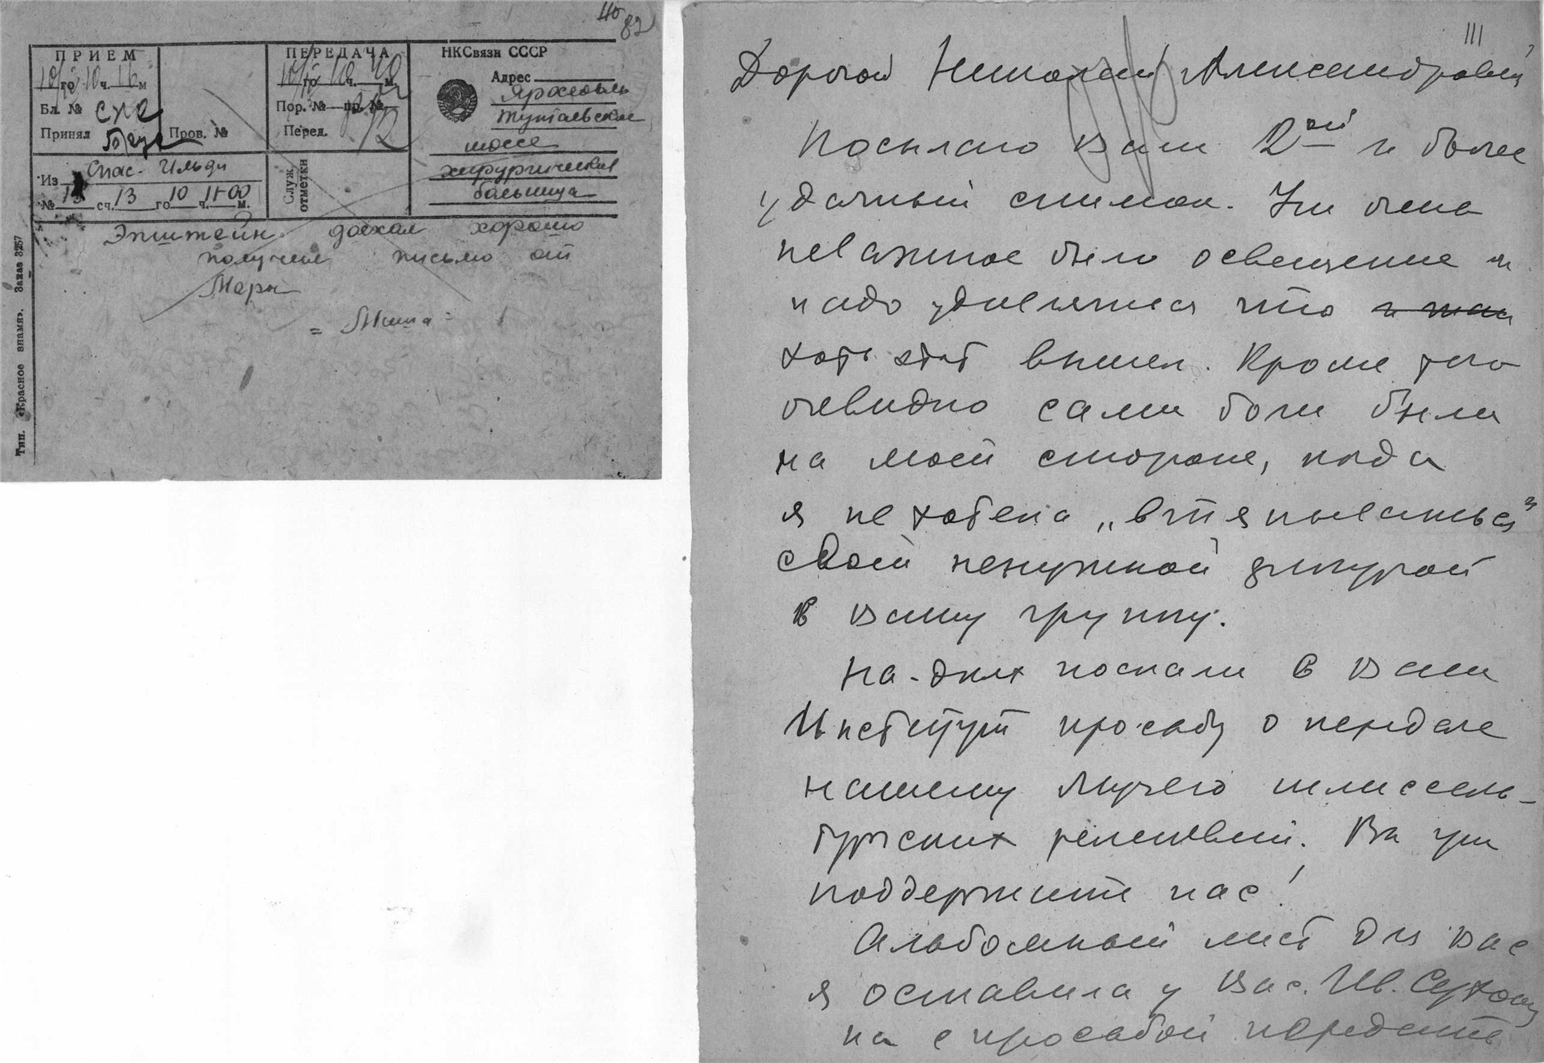 82
ПРИЕМ
Бл. №
Принял
Пров. №
ПЕРЕДАЧА
Пор. №
Перед.
НКСвязи СССР
Адрес
Ярославль
Тутаевское
шоссе
хирургическая
больница
Из Спас-Ильди
№ сч. 13 го 10 ч. 11-00 м.
Служ. отметки
Эпштейн доехал хорошо
получил письмо от
Мары
= Миша =
Тип. «Красное знамя». Заказ 3257
III
Дорогой Николай Александрович,
Посылаю Вам 2ой и более
удачный снимок. Уж очень
неважное было освещение и
надо удивляться что и так
хоть этот вышел. Кроме того
очевидно сами боги были
на моей стороне, когда
я не хотела „втяпываться"
своей ненужной фигурой
в Вашу группу.
На-днях послали в Ваш
Институт просьбу о передаче
нашему Музею шлиссель-
бургских реликвий. Вы уж
поддержите нас!
Альбомный лист для Вас
я оставила у Вас. Ив. Сухомли
на с просьбой передать